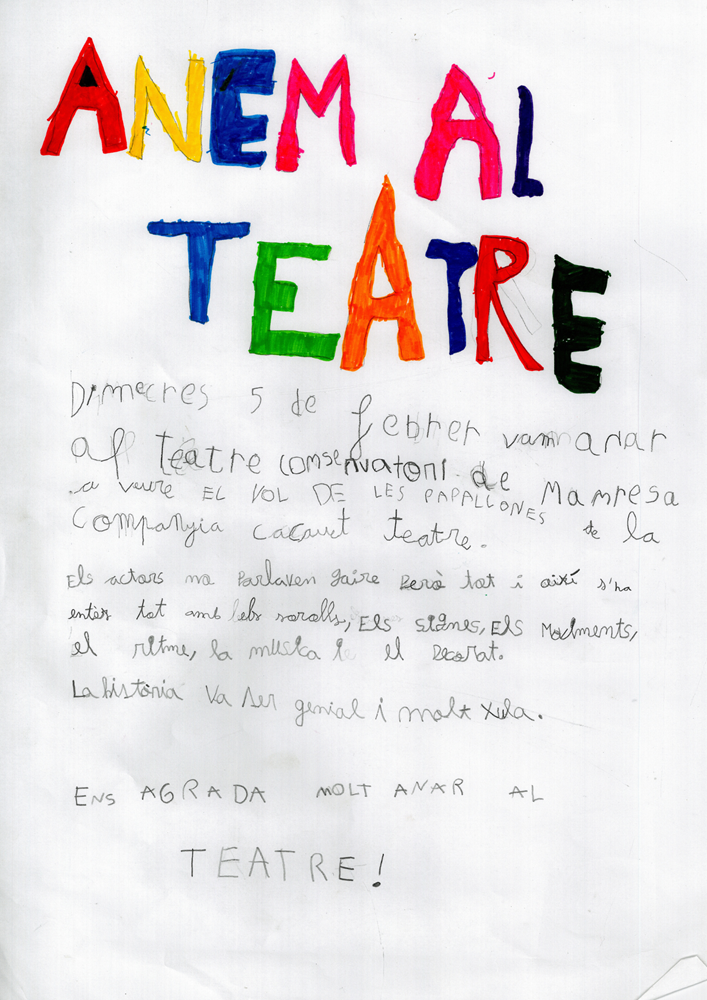 ANEM AL
TEATRE
Dimecres 5 de febrer vam anar
al teatre conservatori de Manresa
a veure EL VOL DE LES PAPALLONES de la
Companyia cacauet teatre.
Els actors no Parlaven gaire Però tot i així s'ha
entès tot amb els sorolls, Els signes, Els Moviments,
el ritme, la música i el Decorat.
La història va ser genial i molt xula.
ENS AGRADA MOLT ANAR AL
TEATRE!